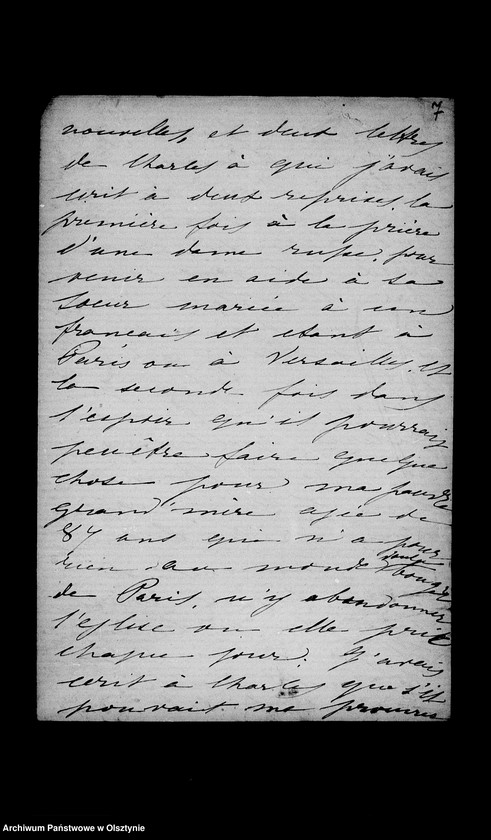 7
nouvelles, et deux lettres
de Charles à qui j'avais
ecrit à deux reprises la
première fois à la prière
d'une dame russe, pour
venir en aide à sa
soeur mariée à un
francais et etant à
Paris ou à Versailles, et
la seconde fois dans
l'espoir qu'il pourrait
peuêtre faire quelque
chose pour ma pauvre
grand mère agée de
87 ans qui n'a pour
rien au monde voulu bouger
de Paris, n'y abandonner
l'eglise ou elle prie
chaque jour. J'avais
ecrit à Charles que s'il
pouvait me
Archiwum Państwowe w Olsztynie